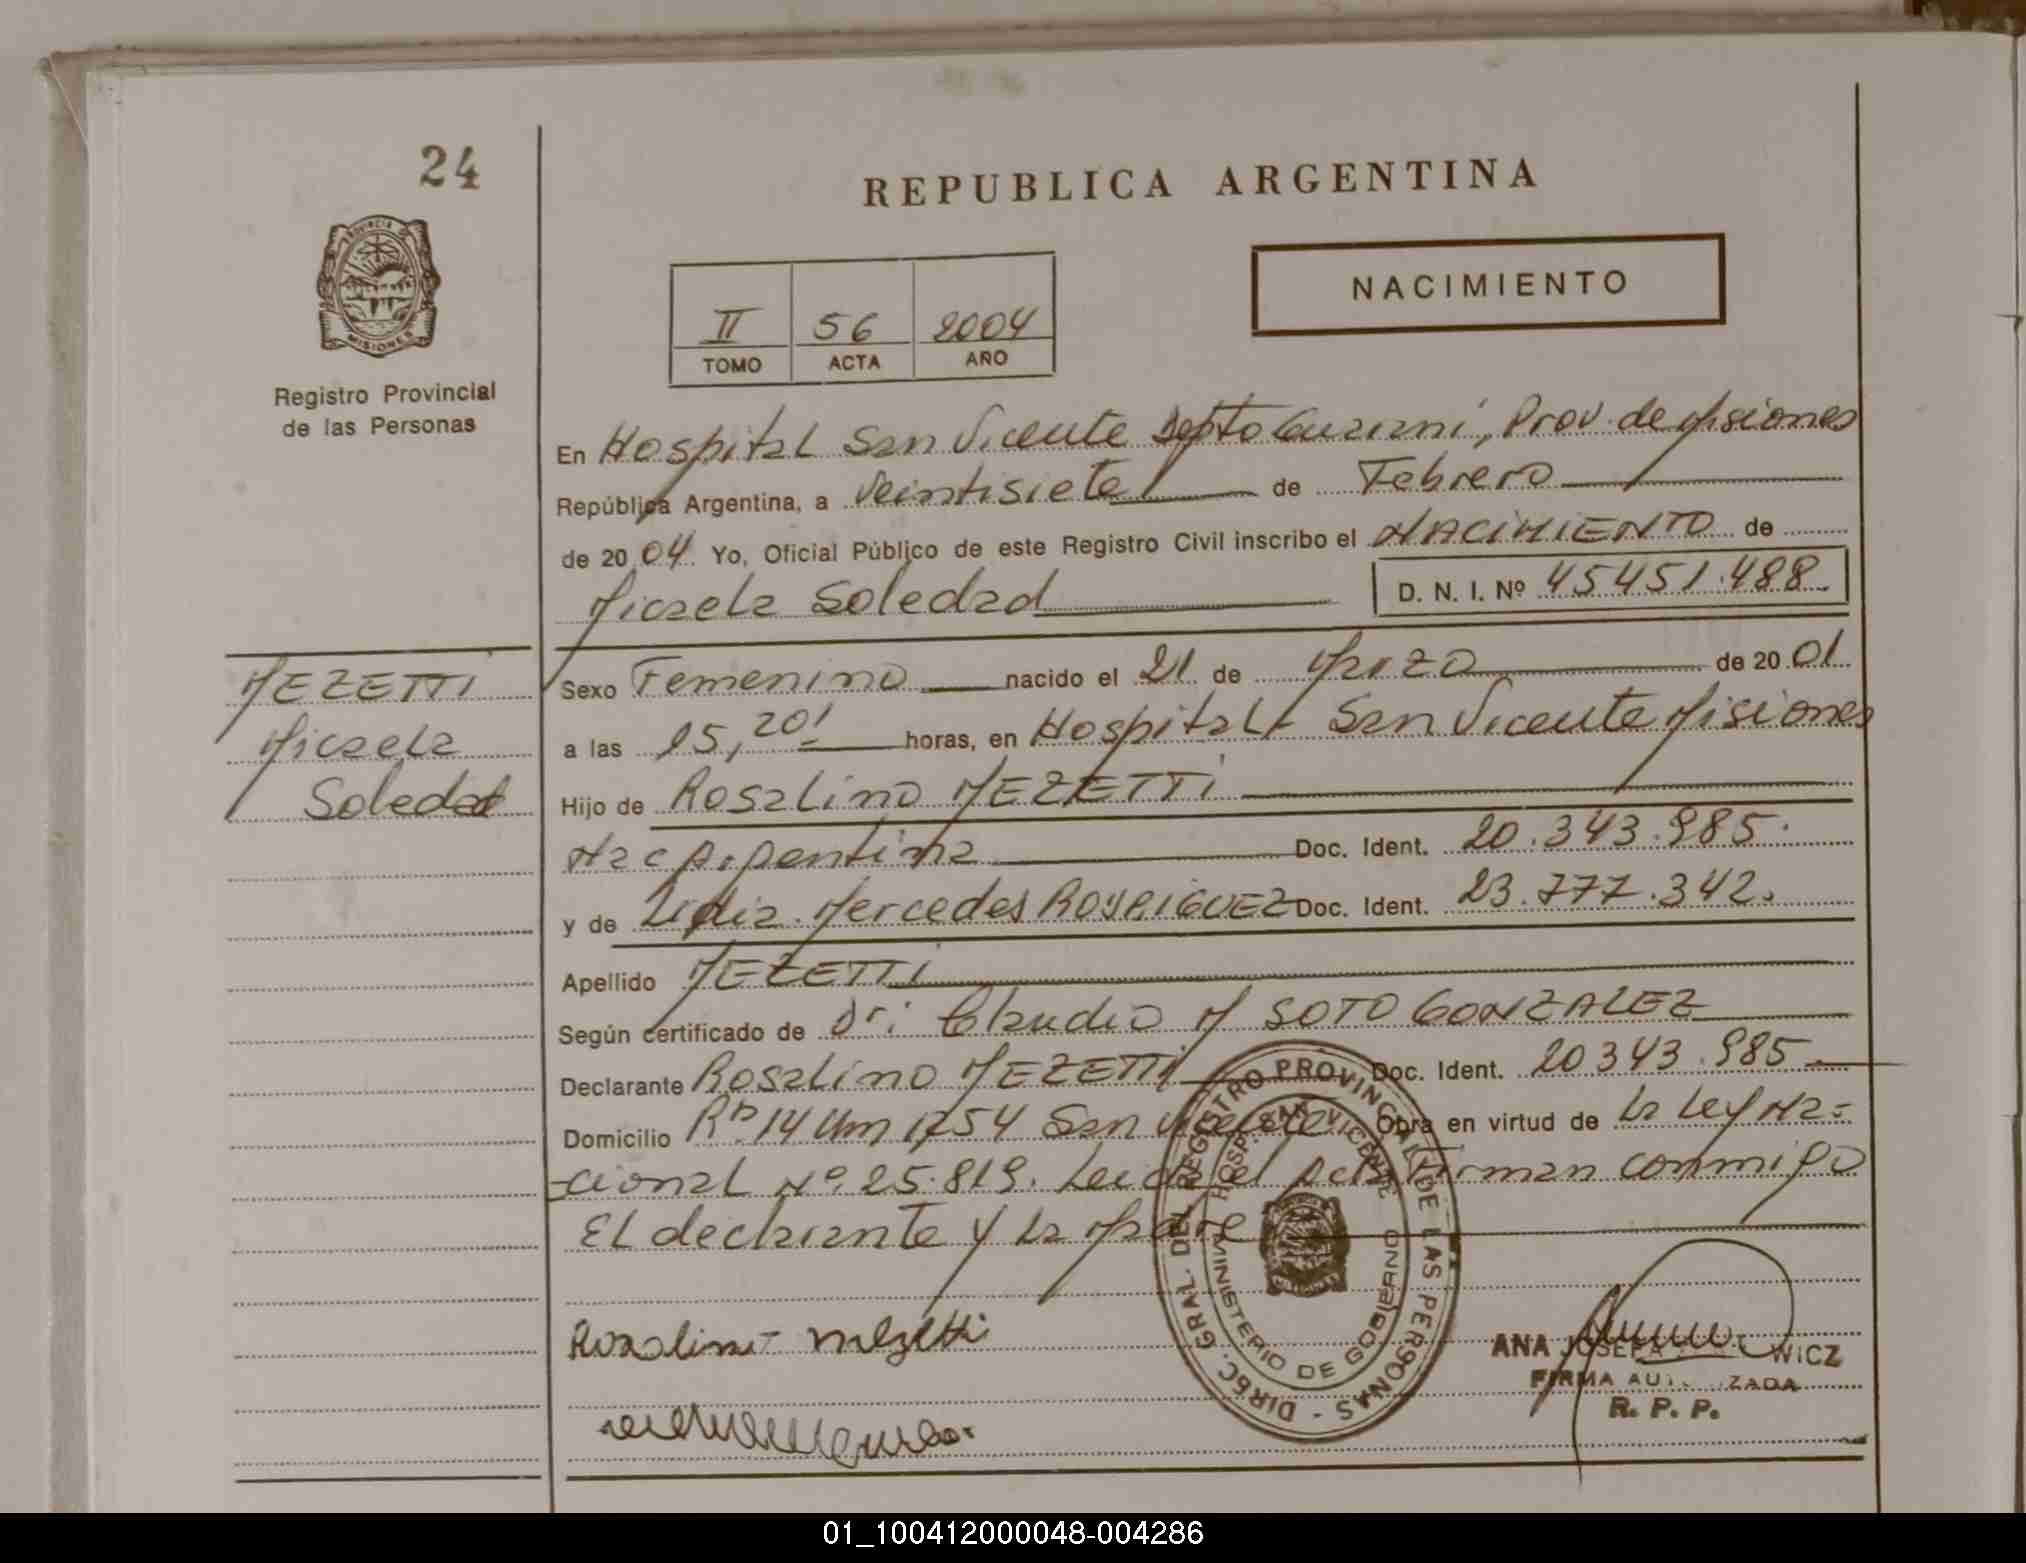 24
REPUBLICA ARGENTINA
NACIMIENTO
II 56 2004
TOMO ACTA AÑO
PROVINCIA DE MISIONES
Registro Provincial
de las Personas
En Hospital San Vicente Dpto Guarani, Prov. de Misiones
República Argentina, a Veintisiete de Febrero
de 20 04 Yo, Oficial Público de este Registro Civil inscribo el NACIMIENTO de
Micaela Soledad D. N. I. Nº 45451.488
MEZETTI
Micaela
Soledad
Sexo Femenino nacido el 21 de Marzo de 20 01
a las 15,20' horas, en Hospital San Vicente Misiones
Hijo de Rosalino MEZETTI
Nac Argentina Doc. Ident. 20.343.985.
y de Lidia Mercedes RODRIGUEZ Doc. Ident. 23.777.342.
Apellido MEZETTI
Según certificado de Dr: Claudio M SOTO GONZALEZ
Declarante Rosalino MEZETTI Doc. Ident. 20343.985
Domicilio 14 Km 1254 San Vicente Obra en virtud de la Ley Na-
cional Nº 25.819. Leida el acta Firman conmigo
El declarante y la Madre
Rosalino Mezetti
DIREC. GRAL. DEL REGISTRO PROVINCIAL DE LAS PERSONAS -
HOSP. SAN VICENTE
MINISTERIO DE GOBIERNO
ANA JOSEFA WICZ
FIRMA AUTORIZADA
R. P. P.
01_100412000048-004286